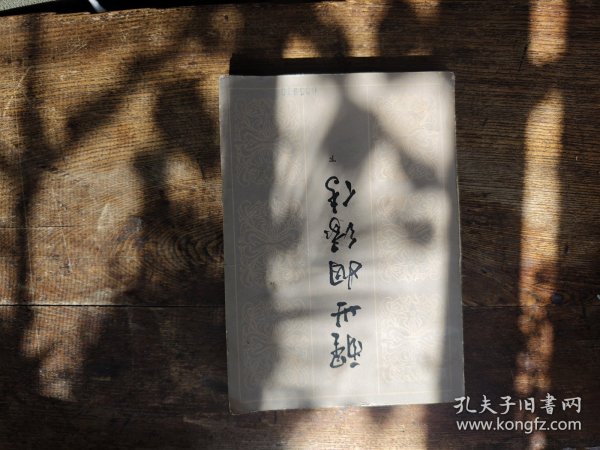 醒世姻緣傳
孔夫子旧書网
www.kongfz.com